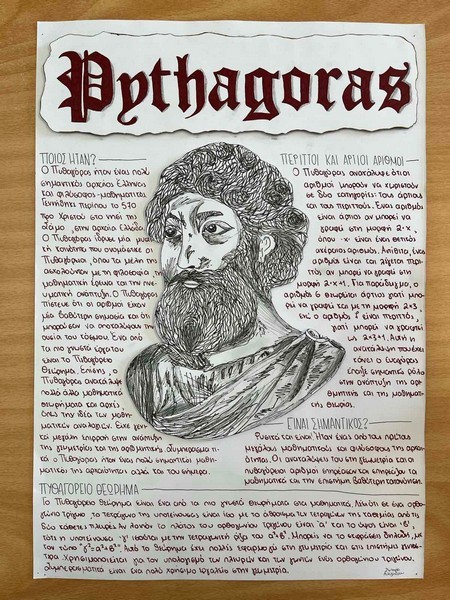 Pythagoras
ΠΟΙΟΣ ΗΤΑΝ?
Ο Πυθαγόρας ήταν ένας πολύ
σημαντικός αρχαίος Έλληνας
και φιλόσοφος-μαθηματικός.
Γεννήθηκε περίπου το 570
προ Χριστού στο νησί της
Σάμου, στην αρχαία Ελλάδα.
Ο Πυθαγόρας ίδρυσε μία
κοινότητα που ονομάζεται οι
Πυθαγόρειοι, όπου τα μέλη της
ασχολούνταν με τη φιλοσοφία, τη
μαθηματική έρευνα και την
ανάπτυξη. Ο Πυθαγόρας
πίστευε ότι οι αριθμοί είχαν
μία βαθύτερη σημασία και ότι
μπορούσαν να αποκαλύψουν την
ουσία του κόσμου. Ένα από
τα πιο γνωστά έργα του
είναι το Πυθαγόρειο
Θεώρημα. Επίσης, ο
Πυθαγόρας ανακάλυψε
πολλά άλλα μαθηματικά
θεωρήματα και αρχές
όπως την ιδέα των
μαθηματικών αναλογιών. Είχε
μεγάλη επιρροή στην ανάπτυξη
της γεωμετρίας και της αριθμητικής.
ο Πυθαγόρας ήταν ένας πολύ σημαντικός
της αρχαιότητας αλλά και του σήμερα.
ΠΕΡΙΤΤΟΙ ΚΑΙ ΑΡΤΙΟΙ ΑΡΙΘΜΟΙ
Ο Πυθαγόρας ανακάλυψε ότι οι
αριθμοί μπορούν να χωριστούν
σε δύο κατηγορίες: τους άρτιους
και τους περιττούς. Ένας αριθμός
είναι άρτιος αν μπορεί να
γραφτεί στη μορφή 2·x,
όπου ·x· είναι ένας θετικός
ακέραιος αριθμός. Αντίθετα, ένας
αριθμός είναι
αν μπορεί να γραφτεί στη
μορφή 2·x+1. Για παράδειγμα, ο
αριθμός 6 θεωρείται άρτιος γιατί
να γραφτεί και με τη μορφή 2·3
ενώ ο αριθμός 7 είναι περιττός,
γιατί μπορεί να γραφτεί
ως 2·3+1. Αυτή η
ανακάλυψη που έχει
κάνει ο
έπαιξε σημαντικό ρόλο
στην ανάπτυξη της
αριθμητικής και της μαθηματικής
θεωρίας.
ΕΙΝΑΙ ΣΗΜΑΝΤΙΚΟΣ?
Φυσικά και είναι! Ήταν ένας από τους πρώτους
μεγάλους μαθηματικούς και φιλόσοφους της αρχαιότητας.
Οι ανακαλύψεις του στη γεωμετρία και οι
πυθαγόρειοι αριθμοί επηρέασαν και επηρεάζουν τα
μαθηματικά και την επιστήμη
ΠΥΘΑΓΟΡΕΙΟ ΘΕΩΡΗΜΑ
Το Πυθαγόρειο Θεώρημα είναι ένα από τα πιο γνωστά θεωρήματα στα μαθηματικά. Λέει ότι σε ένα
ορθογώνιο τρίγωνο, το τετράγωνο της υποτείνουσας είναι ίσο με το άθροισμα των τετραγώνων της
δύο κάθετες πλευρές. Αν λοιπόν το πλάτος του ορθογωνίου τριγώνου είναι 'α' και το ύψος είναι 'β',
τότε η υποτείνουσα 'γ' ισούται με την τετραγωνική ρίζα του α²+β². Μπορείς να το εκφράσεις δηλαδή, με
τον τύπο "γ²=α²+β²". Αυτό το θεώρημα έχει πολλές εφαρμογές στη γεωμετρία και στην επιστήμη
Χρησιμοποιείται για τον υπολογισμό των πλευρών και των γωνιών ενός ορθογωνίου τριγώνου.
Συμπερασματικά είναι ένα πολύ χρήσιμο εργαλείο στην γεωμετρία.